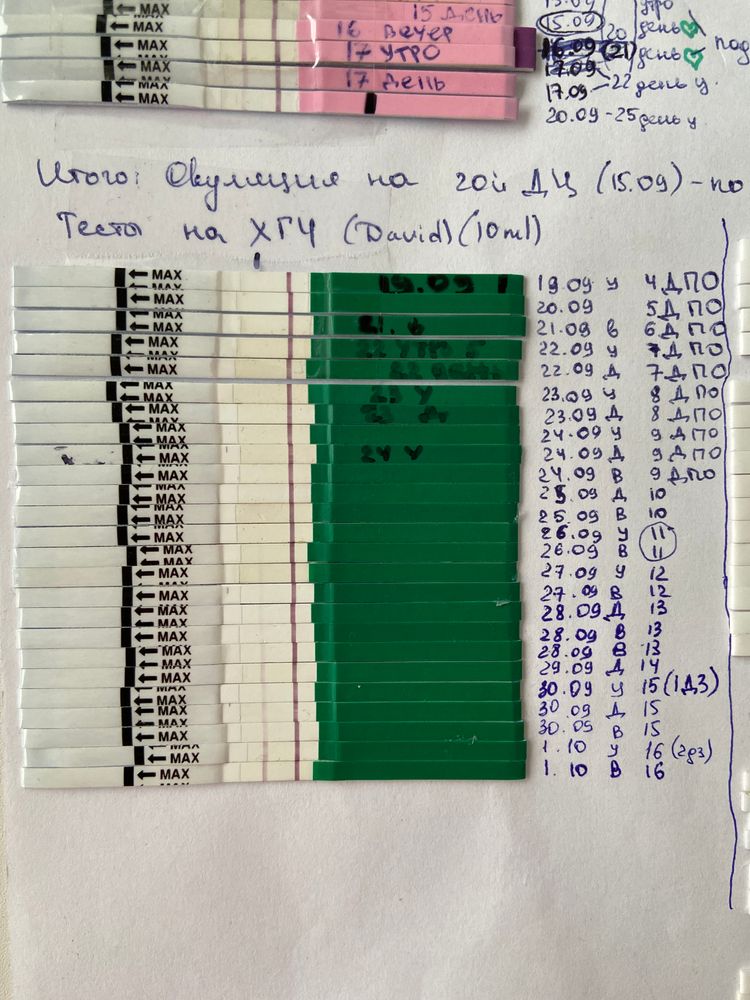 MAX 15 день
MAX 16 вечер
MAX 17 утро
MAX
MAX 17 день
утро
15.09 20 день
16.09 (21) день под
17.09
17.09 – 22 день ц.
20.09 – 25 день ц
Итого: Овуляция на 20й ДЦ (15.09) – по
Тесты на ХГЧ (David) (10ml)
MAX 19.09 19.09 у 4 ДПО
MAX 20.09 5 ДПО
MAX 21. в 21.09 в 6 ДПО
MAX 22 утро 22.09 у 7 ДПО
MAX 22 день 22.09 Д 7 ДПО
MAX 23 у 23.09 у 8 ДПО
MAX 23 д 23.09 Д 8 ДПО
MAX 24.09 у 9 ДПО
MAX 24 у 24.09 Д 9 ДПО
MAX 24.09 В 9 ДПО
MAX 25.09 Д 10
MAX 25.09 В 10
MAX 26.09 у 11
MAX 26.09 В 11
MAX 27.09 у 12
MAX 27.09 В 12
MAX 28.09 Д 13
MAX 28.09 В 13
MAX 28.09 В 13
MAX 29.09 Д 14
MAX 30.09 у 15 (1ДЗ)
MAX 30.09 Д 15
MAX 30.09 В 15
MAX 1.10 у 16 (2дз)
MAX 1.10 В 16